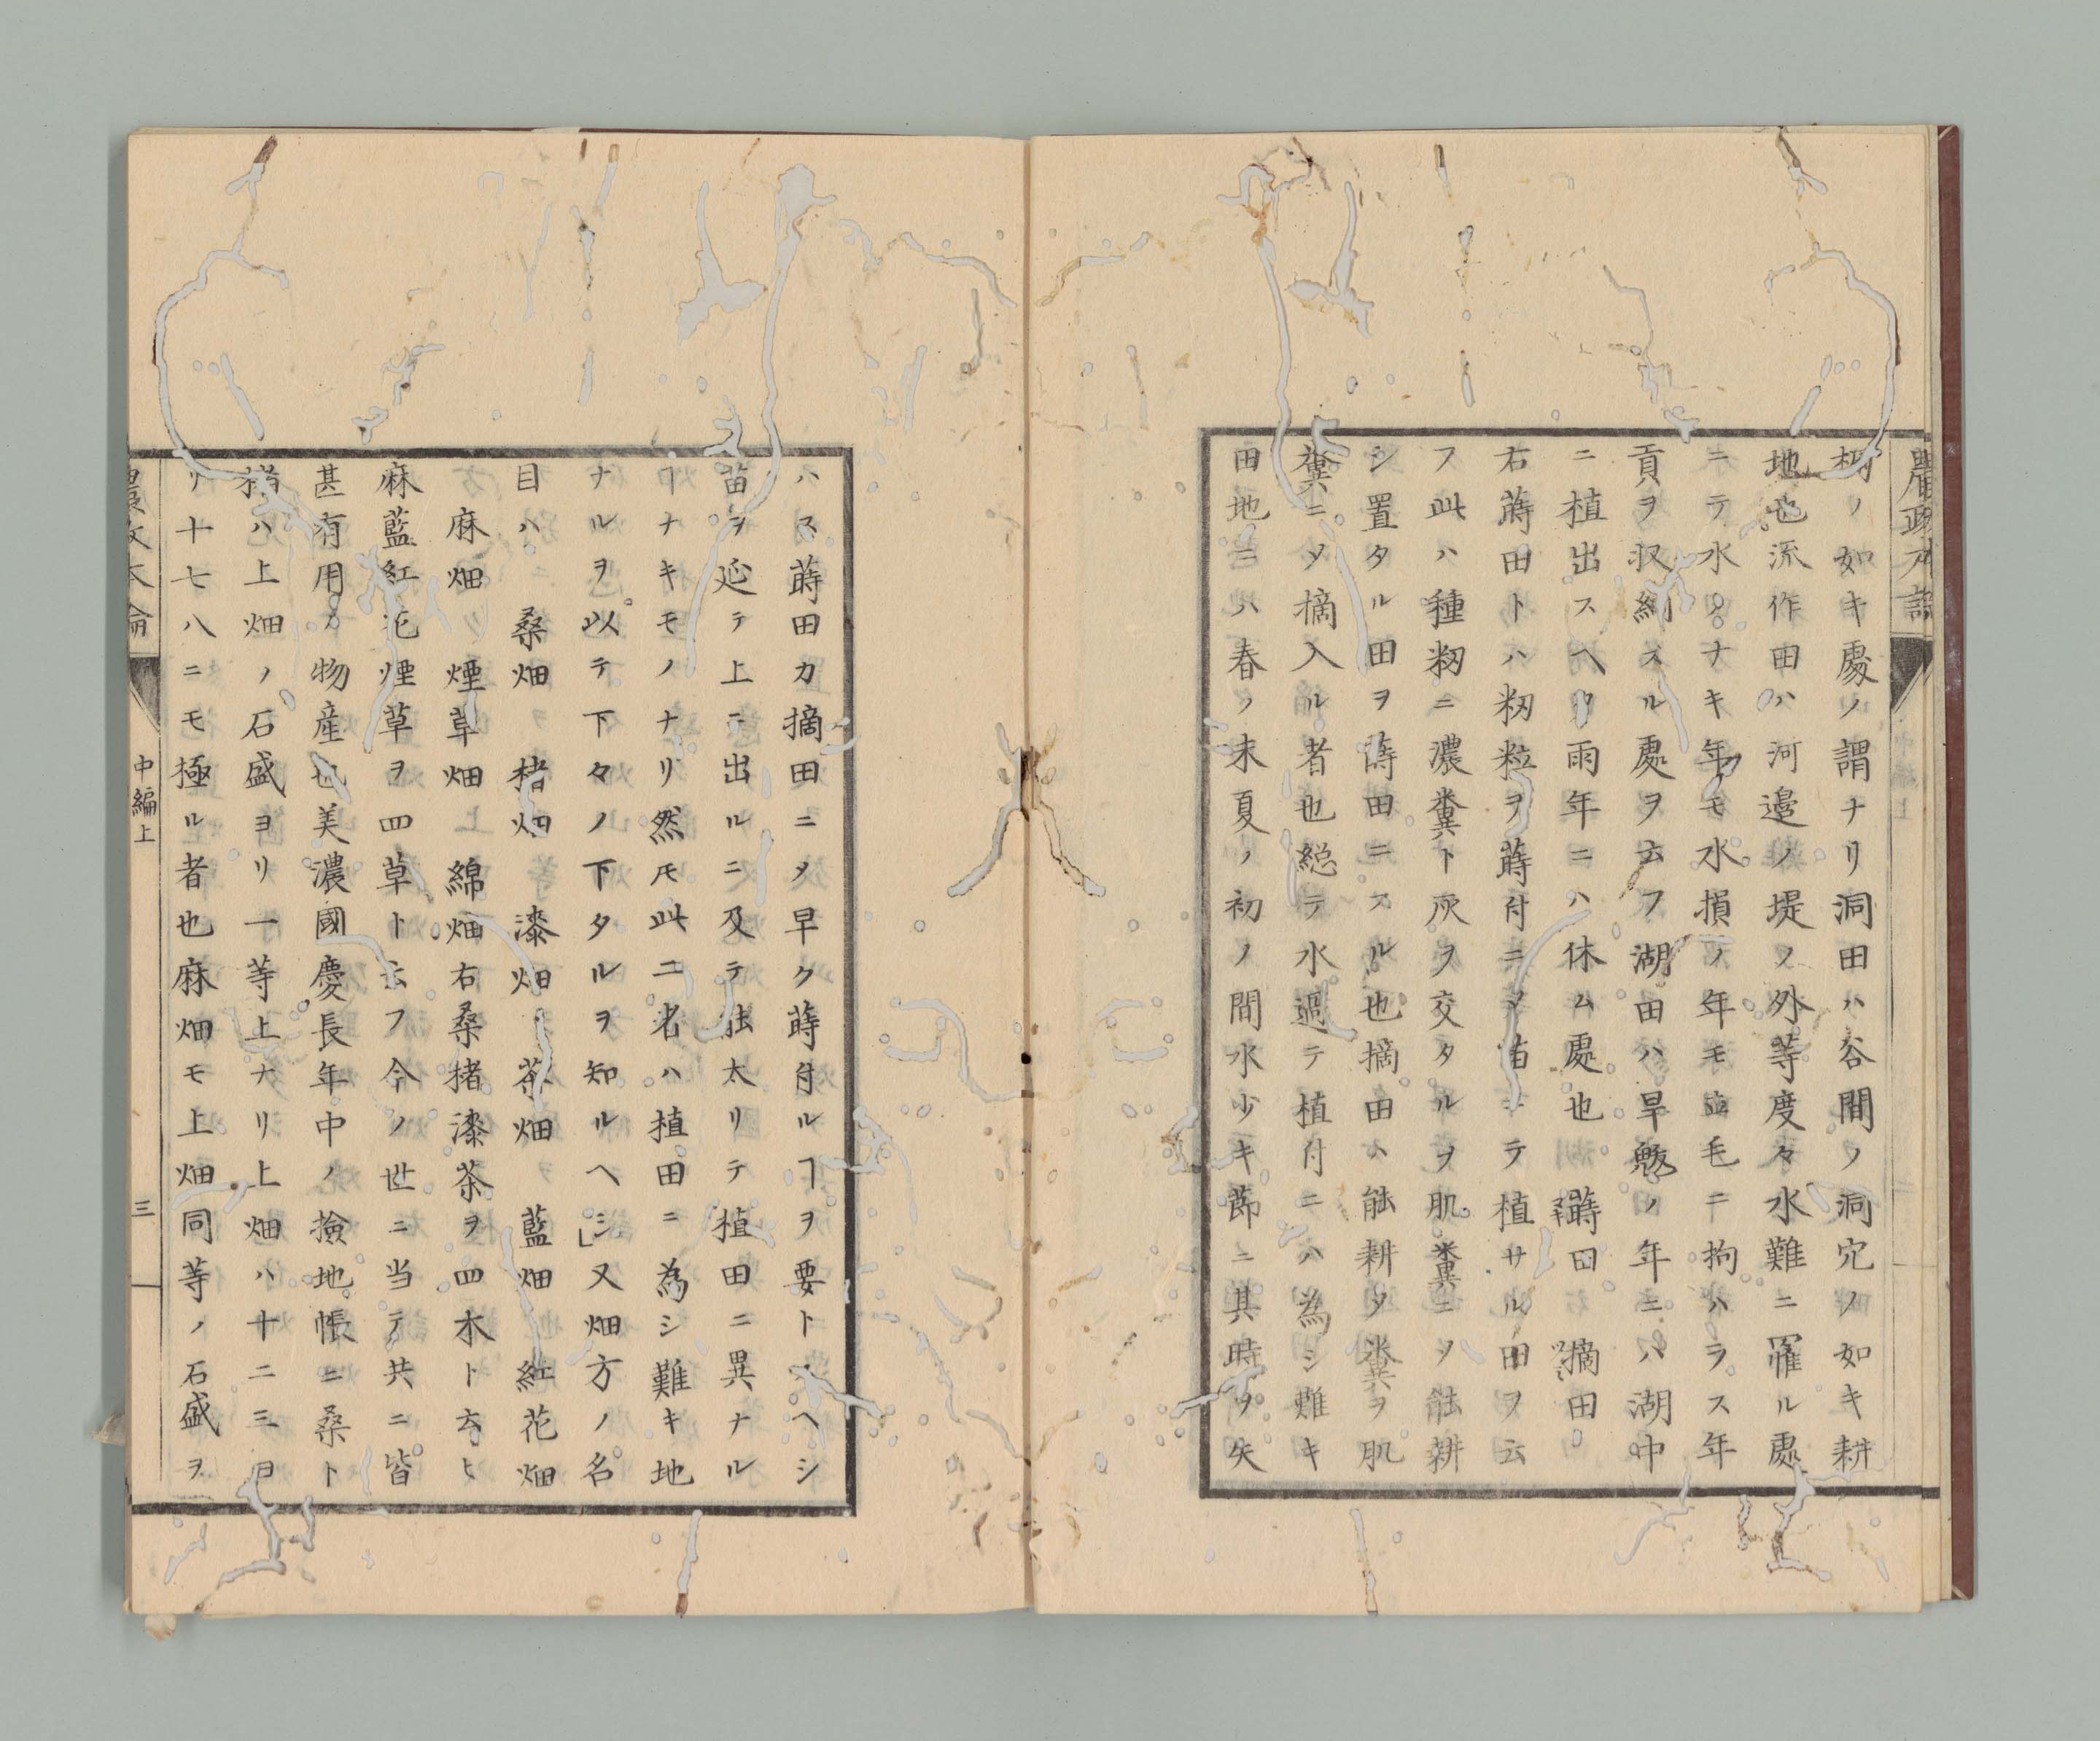 柄ノ如キ處ノ謂ナリ洞田ハ谷間ノ洞穴ノ如キ耕
地也流作田ハ河邉ノ堤ノ外等度々水難ニ罹ル處
ニテ水ナキ年モ水損ノ年モ立毛ニ拘ハラス年
貢ヲ収納スル處ヲ云フ湖田ハ旱魃ノ年ニハ湖中
ニ植出スヘク雨年ニハ休ム處也 蒔田 摘田
右蒔田トハ籾粒ヲ蒔付ニメ苗ニテ植サル田ヲ云
フ此ハ種籾ニ濃糞ト灰ヲ交タルヲ肌糞ニメ能耕
シ置タル田ヲ蒔田ニスル也摘田ハ能耕タ糞ヲ肌
糞ニメ摘入ル者也総テ水過テ植付ニハ為シ難キ
田地ニハ春ノ末夏ノ初ノ間水少キ節ニ其時ヲ失
ハス蒔田カ摘田ニメ早ク蒔付ルヿヲ要トスヘシ
苗ヲ延テ上ニ出ルニ及テ能太リテ植田ニ異ナル
ヿナキモノナリ然モ此二者ハ植田ニ為シ難キ地
ナルヲ以テ下々ノ下タルヲ知ルヘシ」又畑方ノ名
目ハ 桑畑 楮畑 漆畑 茶畑 藍畑 紅花畑
麻畑 煙草畑 綿畑右桑楮漆茶ヲ四木ト云ヒ
麻藍紅花煙草ヲ四草ト云フ今ノ世ニ当テ共ニ皆
甚有用ノ物産也美濃國慶長年中ノ撿地帳ニ桑ト
楮ハ上畑ノ石盛ヨリ一等上ナリ上畑ハ十二三ヨ
リ十七八ニモ極ル者也麻畑モ上畑同等ノ石盛ヲ
農政本論
中編上
三